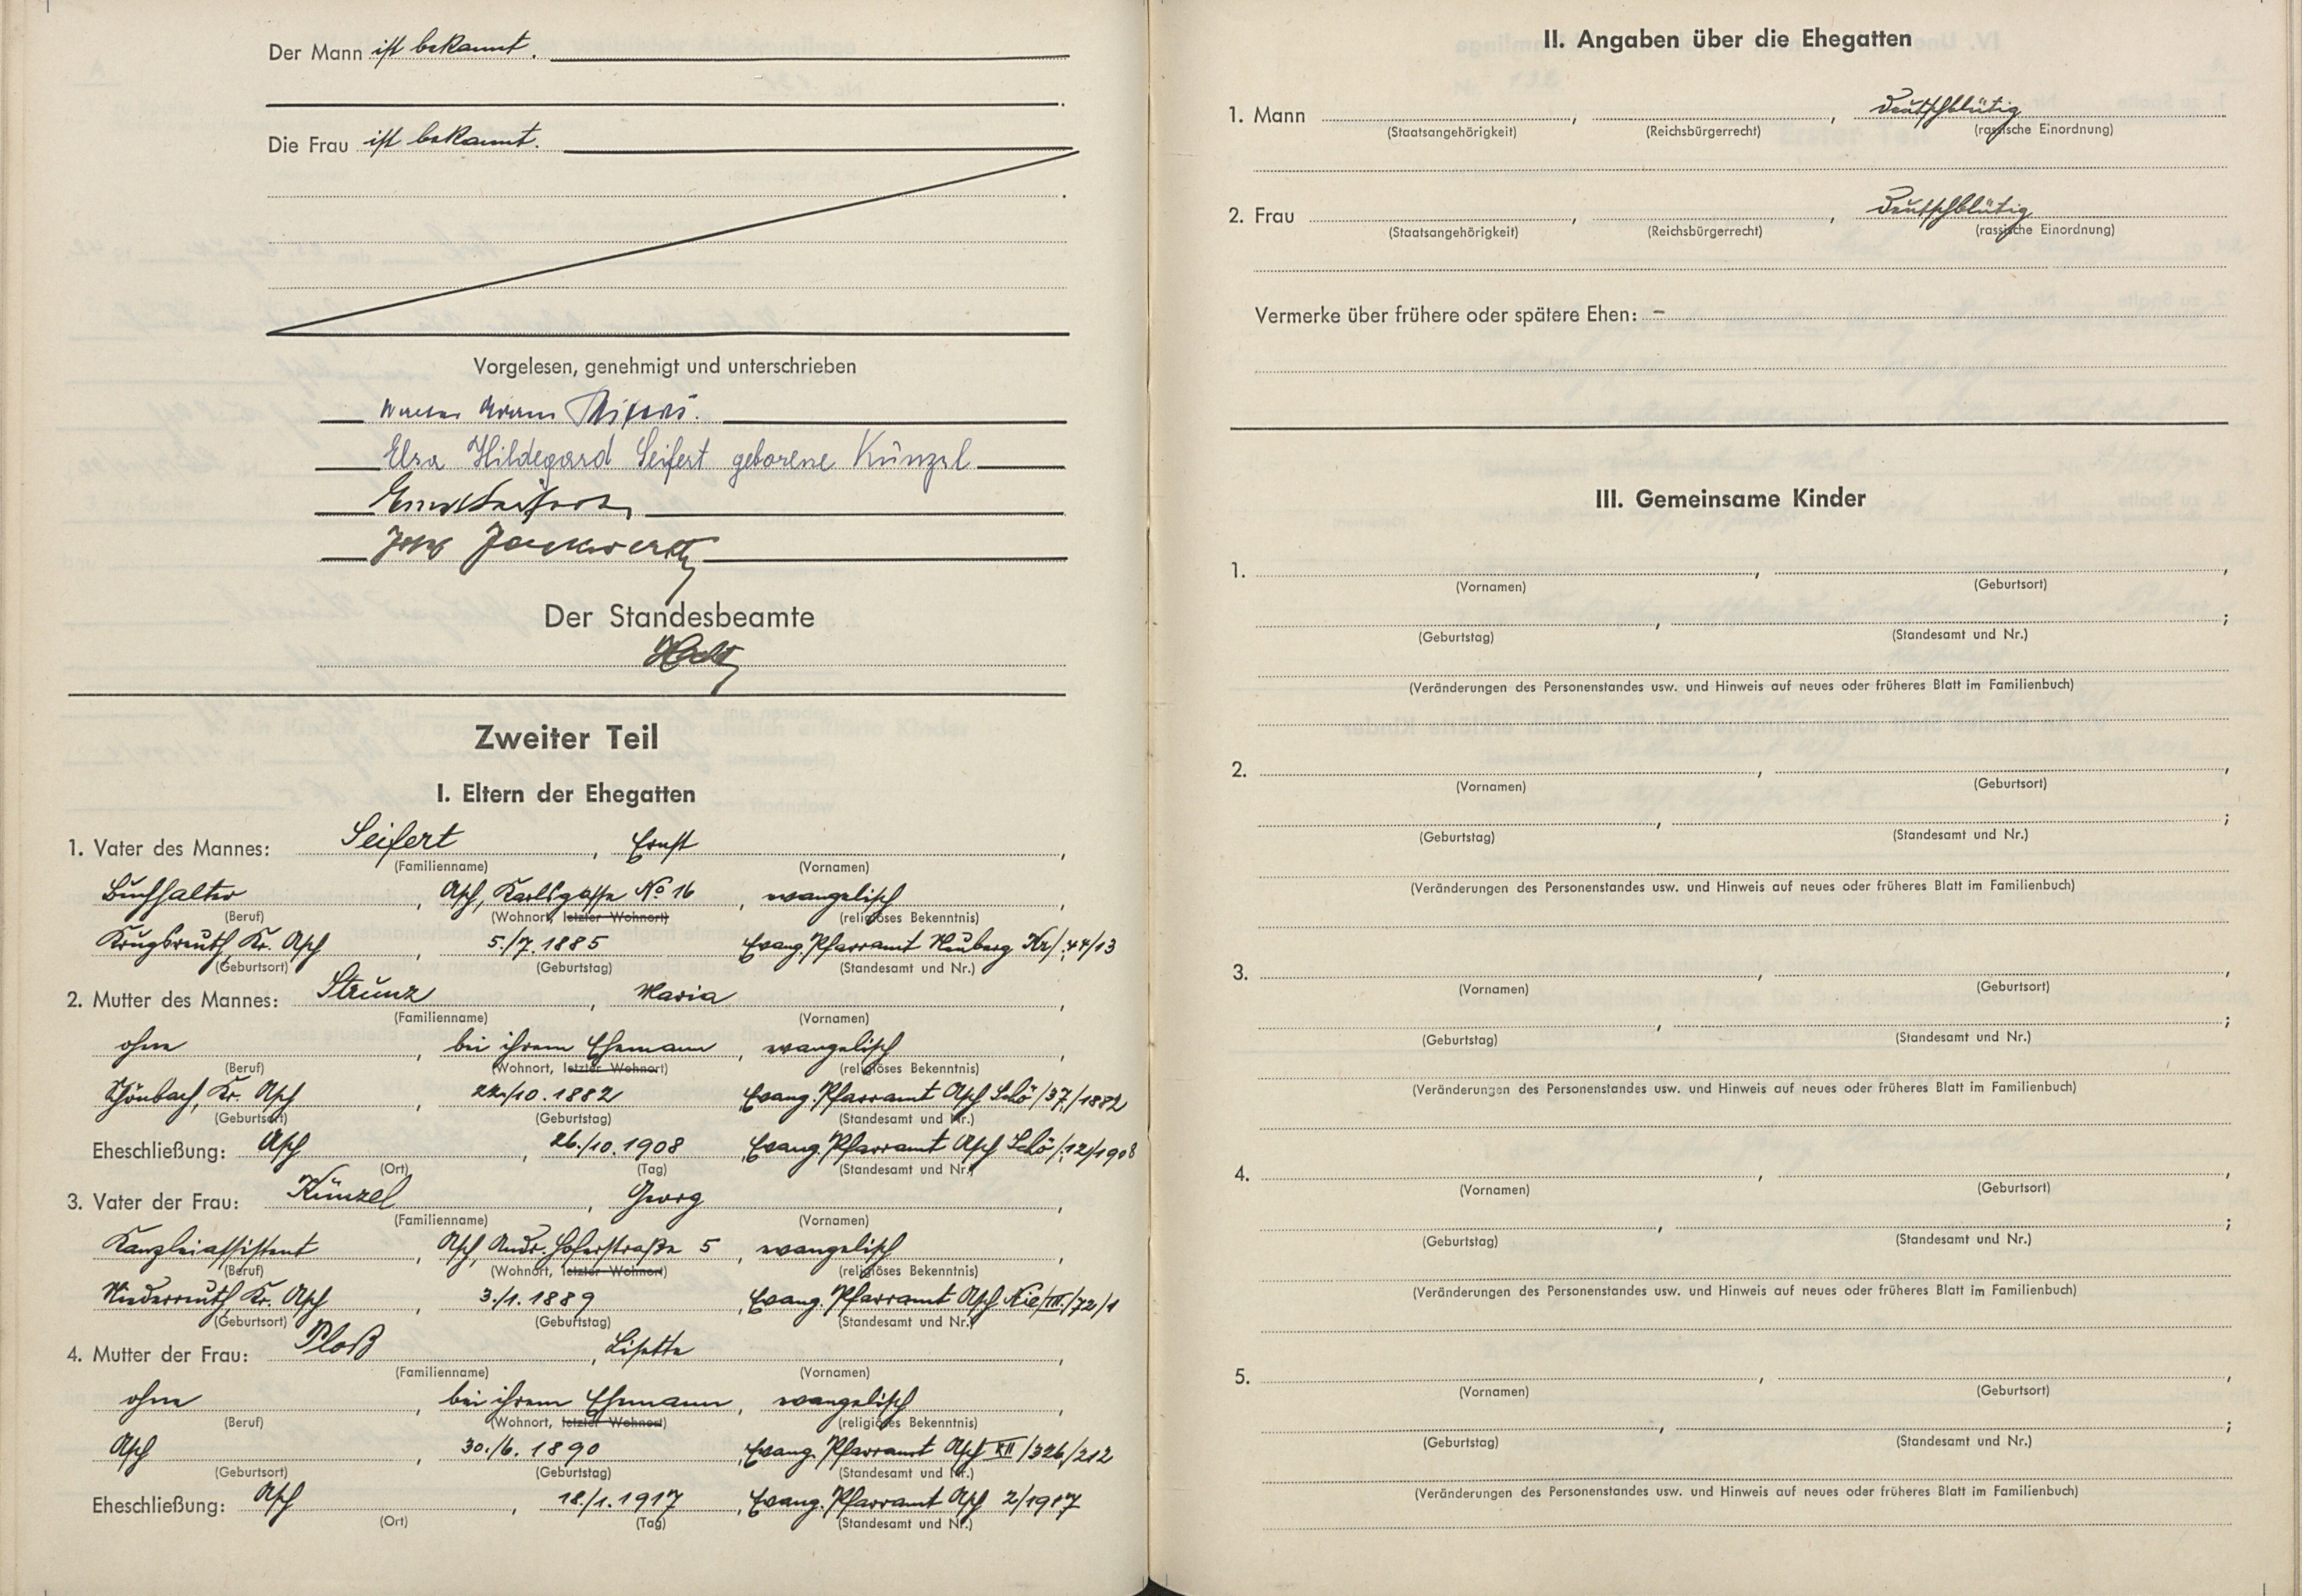 Der Mann ist bekannt.
Die Frau ist bekannt.
Vorgelesen, genehmigt und unterschrieben
Elsa Hildegard Seifert geborene Künzel
Ernst Seifert
Der Standesbeamte
Zweiter Teil
I. Eltern der Ehegatten
1. Vater des Mannes: Seifert, Ernst,
(Familienname) (Vornamen)
Buchhalter, Asch, Karlsgasse No 16, evangelisch,
(Beruf) (Wohnort, letzter Wohnort) (religiöses Bekenntnis)
Krugsreuth, Kr. Asch, 5./7.1885 Evang. Pfarramt Neuberg Kr/:44/13
(Geburtsort) (Geburtstag) (Standesamt und Nr.)
2. Mutter des Mannes: Strunz, Maria,
(Familienname) (Vornamen)
ohne, bei ihrem Ehemann, evangelisch,
(Beruf) (Wohnort, letzter Wohnort) (religiöses Bekenntnis)
Schönbach, Kr. Asch, 22./10.1882 Evang. Pfarramt Asch Schö/37./1882
(Geburtsort) (Geburtstag) (Standesamt und Nr.)
Eheschließung: Asch, 26./10.1908 Evang. Pfarramt Asch Schö/:12/1908
(Ort) (Tag) (Standesamt und Nr.)
3. Vater der Frau: Künzel, Georg,
(Familienname) (Vornamen)
Kanzleiassistent, Asch, Andr. Hoferstraße 5, evangelisch,
(Beruf) (Wohnort, letzter Wohnort) (religiöses Bekenntnis)
Niederreuth, Kr. Asch, 3./1.1889, Evang. Pfarramt Asch Nie/III./72/1
(Geburtsort) (Geburtstag) (Standesamt und Nr.)
4. Mutter der Frau: Ploß, Lisette
(Familienname) (Vornamen)
ohne, bei ihrem Ehemann, evangelisch,
(Beruf) (Wohnort, letzter Wohnort) (religiöses Bekenntnis)
Asch, 30./6.1890, Evang. Pfarramt Asch XII/326/212
(Geburtsort) (Geburtstag) (Standesamt und Nr.)
Eheschließung: Asch, 18./1.1917, Evang. Pfarramt Asch 2/1917
(Ort) (Tag) (Standesamt und Nr.)
II. Angaben über die Ehegatten
1. Mann , , deutschblütig
(Staatsangehörigkeit) (Reichsbürgerrecht) (rassische Einordnung)
2. Frau , , deutschblütig
(Staatsangehörigkeit) (Reichsbürgerrecht) (rassische Einordnung)
Vermerke über frühere oder spätere Ehen: –
III. Gemeinsame Kinder
1. , ,
(Vornamen) (Geburtsort)
, ;
(Geburtstag) (Standesamt und Nr.)
(Veränderungen des Personenstandes usw. und Hinweis auf neues oder früheres Blatt im Familienbuch)
2. , ,
(Vornamen) (Geburtsort)
, ;
(Geburtstag) (Standesamt und Nr.)
(Veränderungen des Personenstandes usw. und Hinweis auf neues oder früheres Blatt im Familienbuch)
3. , ,
(Vornamen) (Geburtsort)
, ;
(Geburtstag) (Standesamt und Nr.)
(Veränderungen des Personenstandes usw. und Hinweis auf neues oder früheres Blatt im Familienbuch)
4. , ,
(Vornamen) (Geburtsort)
, ;
(Geburtstag) (Standesamt und Nr.)
(Veränderungen des Personenstandes usw. und Hinweis auf neues oder früheres Blatt im Familienbuch)
5. , ,
(Vornamen) (Geburtsort)
, ;
(Geburtstag) (Standesamt und Nr.)
(Veränderungen des Personenstandes usw. und Hinweis auf neues oder früheres Blatt im Familienbuch)